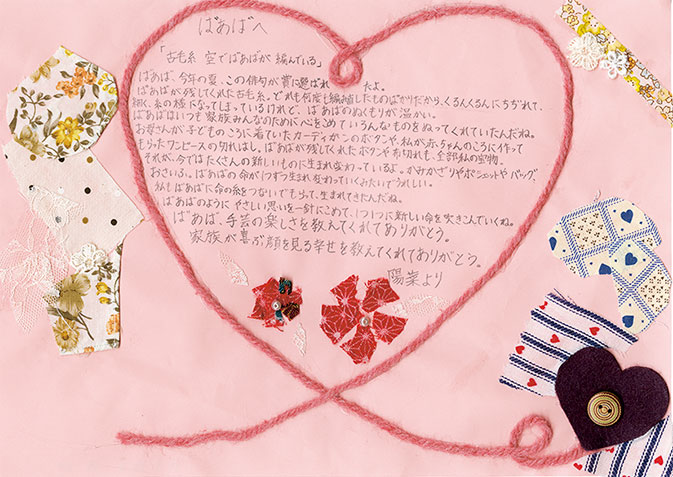 ばあばへ
「古毛糸 空でばあばが 編んでいる」
ばあば、今年の夏、この俳句が賞に選ばれたよ。
ばあばが残してくれた古毛糸。どれも何度も編み直したものばかりだから、くるんくるんにちぢれて、
細く、糸の様になってしまっているけれど、ばあばのぬくもりが温かい。
ばあばはいつも家族みんなのために心をこめていろんなものをぬってくれていたんだね。
お母さんが子どものころに着ていたカーディガンのボタンや、私が赤ちゃんのころに作って
もらったワンピースの切れはし。ばあばが残してくれたボタンや布切れも、全部私の宝物。
それが、今ではたくさんの新しいものに生まれ変わっているよ。かみかざりやポシェットやバッグ、
おさいふ。ばあばの命が一つずつ生まれ変わっていくみたいでうれしい。
私もばあばに命の糸をつないでもらって、生まれてきたんだね。
ばあばのように やさしい思いを一針にこめて、一つ一つに新しい命を吹きこんでいくね。
ばあば、手芸の楽しさを教えてくれてありがとう。
家族が喜ぶ顔を見る幸せを教えてくれてありがとう。
陽菜より